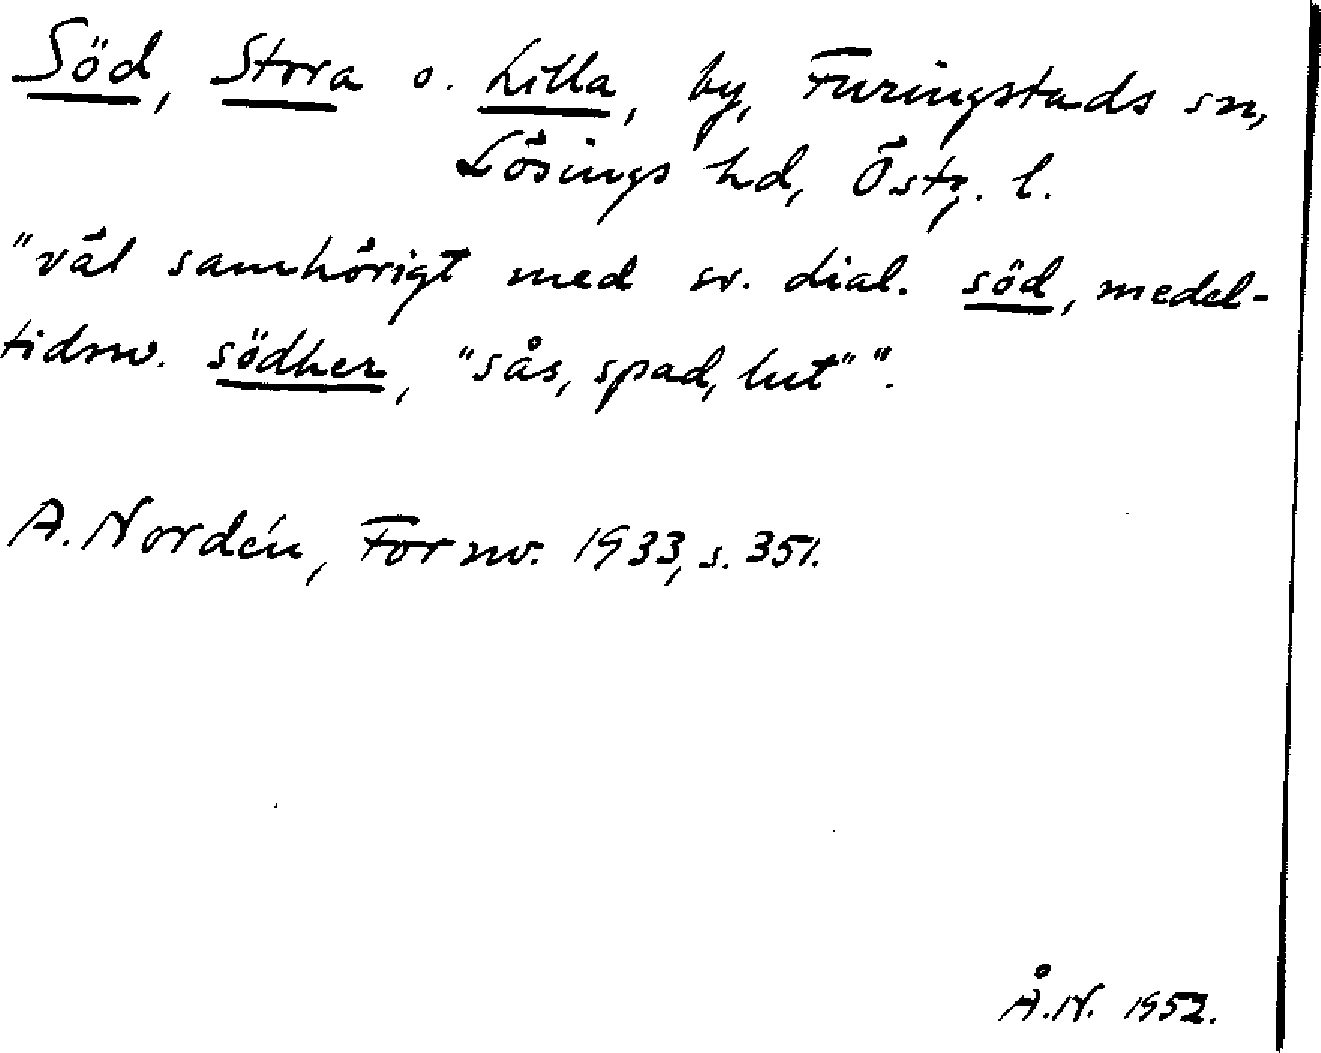 Söd, Stora o. Lilla, by, Furingstads sn,
Lösings hd, Östg. l.
"väl samhörigt med sv. dial. söd, medel-
tidssv. södher, "sås, spad, lut"".
A. Nordén, Fornv. 1933, s. 351.
Å.N. 1952.